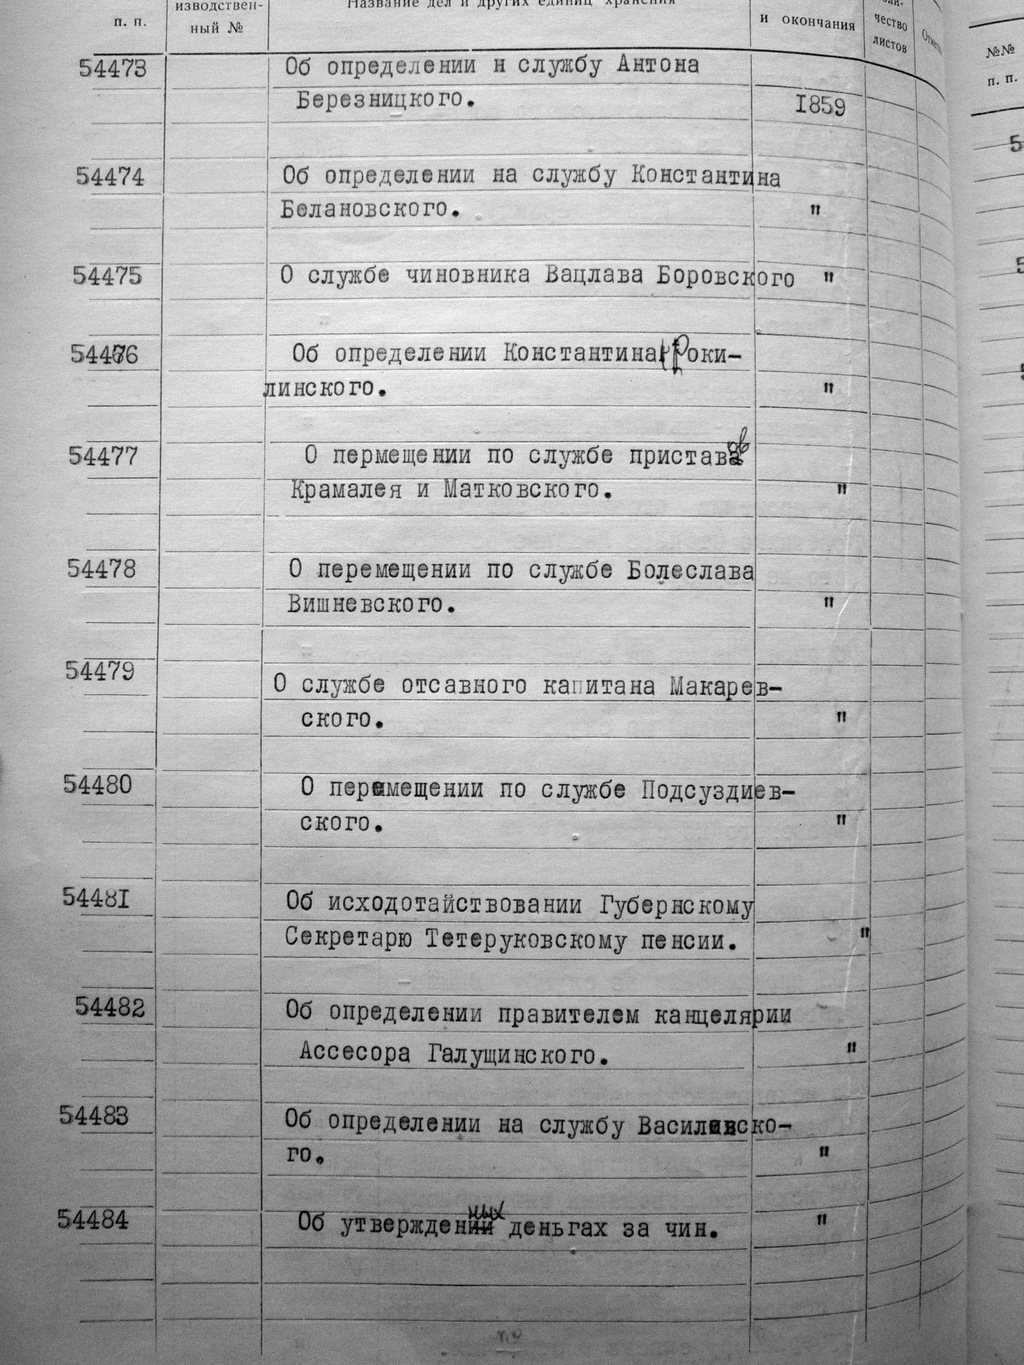 п. п.
изводствен-
ный №
Название дел и других единиц хранения
и окончания
чество
листов
№№
п. п.
54473 Об определении н службу Антона
Березницкого. 1859
54474 Об определении на службу Константина
Белановского. "
54475 О службе чиновника Вацлава Боровского "
54476 Об определении Константина Роки-
линского. "
54477 О пермещении по службе приставов
Крамалея и Матковского. "
54478 О перемещении по службе Болеслава
Вишневского. "
54479 О службе отсавного капитана Макарев-
ского. "
54480 О перемещении по службе Подсуздиев-
ского. "
54481 Об исходотайствовании Губернскому
Секретарю Тетеруковскому пенсии. "
54482 Об определении правителем канцелярии
Ассесора Галущинского. "
54483 Об определении на службу Василевско-
го. "
54484 Об утвержденных деньгах за чин. "